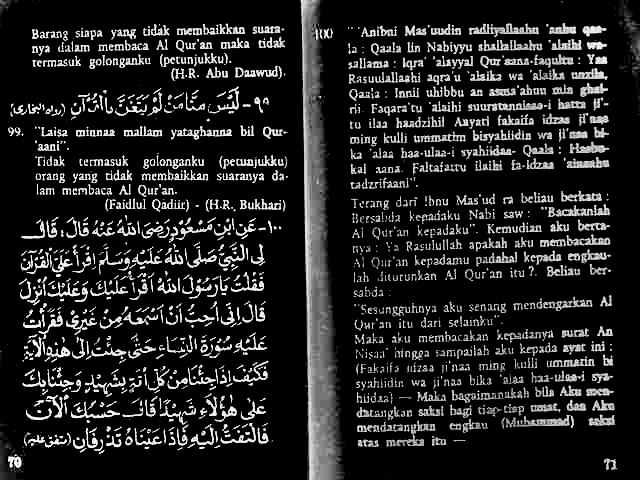 Barang siapa yang tidak membaikkan suara-
nya dalam membaca Al Qur'an maka tidak
termasuk golonganku (petunjukku).
(H.R. Abu Daawud).
٩٩- لَيْسَ مِنَّا مَنْ لَمْ يَتَغَنَّ بِالْقُرْآنِ (رواه البخارى)
99. "Laisa minnaa mallam yataghanna bil Qur-
'aani".
Tidak termasuk golonganku (petunjukku)
orang yang tidak membaikkan suaranya da-
lam membaca Al Qur'an.
(Faidlul Qadiir) - (H.R. Bukhari)
١٠٠- عَنِ ابْنِ مَسْعُوْدٍ رَضِيَ اللهُ عَنْهُ قَالَ، قَالَ
لِى النَّبِيُّ صَلَّى اللهُ عَلَيْهِ وَسَلَّمَ اِقْرَأْ عَلَيَّ الْقُرْآنَ
فَقُلْتُ يَارَسُوْلَ اللهِ أَقْرَأُ عَلَيْكَ وَعَلَيْكَ اُنْزِلَ
قَالَ اِنِّى اُحِبُّ اَنْ اَسْمَعَهُ مِنْ غَيْرِى فَقَرَأْتُ
عَلَيْهِ سُوْرَةَ النِّسَاءِ حَتَّى جِئْتُ اِلَى هٰذِهِ الْآيَةِ
فَكَيْفَ اِذَا جِئْنَا مِنْ كُلِّ اُمَّةٍ بِشَهِيْدٍ وَجِئْنَا بِكَ
عَلَى هٰؤُلَاءِ شَهِيْدًا قَالَ حَسْبُكَ الْآنَ
فَالْتَفَتُّ اِلَيْهِ فَاِذَا عَيْنَاهُ تَذْرِفَانِ (متفق عليه)
70
100 "'Anibni Mas'uudin radliyallaahu 'anhu qaa-
la : Qaala lin Nabiyyu shallallaahu 'alaihi wa-
sallama : Iqra' 'alayyal Qur'aana-faqultu : Yaa
Rasuulallaahi aqra'u 'alaika wa 'alaika unzila,
Qaala : Innii uhibbu an asma'ahuu min ghai-
rii. Faqara'tu 'alaihi suuratannisaa-i hatta ji'-
tu ilaa haadzihil Aayati fakaifa idzaa ji'naa
ming kulli ummatim bisyahiidin wa ji'naa bi-
ka 'alaa haa-ulaa-i syahiidaa- Qaala : Hasbu-
kal aana. Faltafattu ilaihi fa-idzaa 'ainaahu
tadzrifaani".
Terang dari Ibnu Mas'ud ra beliau berkata :
Bersabda kepadaku Nabi saw : "Bacakanlah
Al Qur'an kepadaku". Kemudian aku berta-
nya : Ya Rasulullah apakah aku membacakan
Al Qur'an kepadamu padahal kepada engkau-
lah diturunkan Al Qur'an itu ?. Beliau ber-
sabda :
"Sesungguhnya aku senang mendengarkan Al
Qur'an itu dari selainku".
Maka aku membacakan kepadanya surat An
Nisaa' hingga sampailah aku kepada ayat ini :
(Fakaifa idzaa ji'naa ming kulli ummatin bi
syahiidin wa ji'naa bika 'alaa haa-ulaa-i sya-
hiidaa) — Maka bagaimanakah bila Aku men-
datangkan saksi bagi tiap-tiap umat, dan Aku
mendatangkan engkau (Muhammad) saksi
atas mereka itu —
71